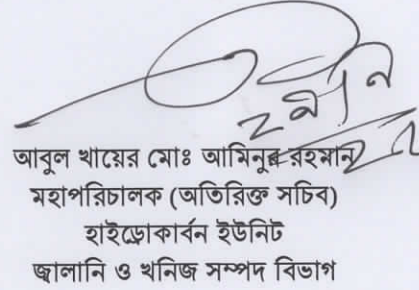 আবুল খায়ের মোঃ আমিনুর রহমান
মহাপরিচালক (অতিরিক্ত সচিব)
হাইড্রোকার্বন ইউনিট
জ্বালানি ও খনিজ সম্পদ বিভাগ